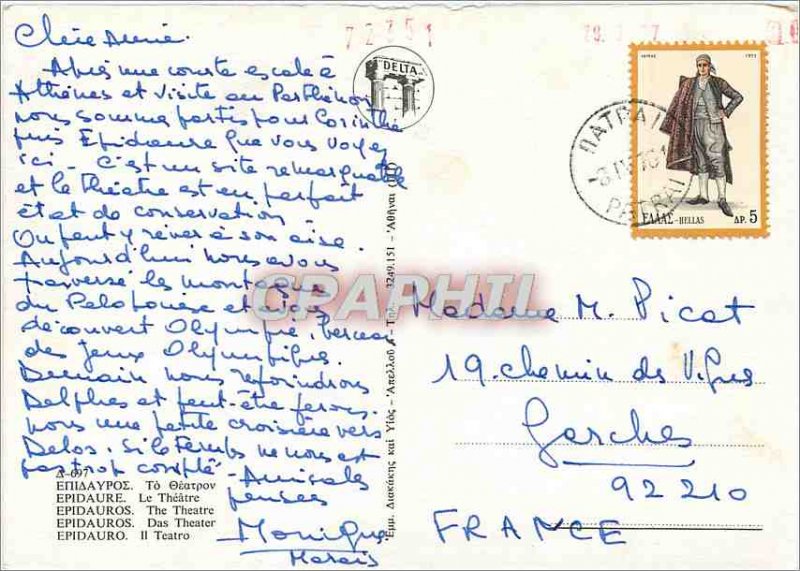 Chère Annie.
Après une courte escale à
Athènes et visite au Parthénon
nous sommes partis pour Corinthe
puis Epidaure que vous voyez
ici - C'est un site remarquable
et le théâtre est en parfait
état de conservation
On peut y rêver à son aise.
Aujourd'hui nous avons
traversé les montagnes
du Péloponèse et
découvert Olympie, berceau
des Jeux Olympiques.
Demain nous rejoindrons
Delphes et peut-être ferons
nous une petite croisière vers
Delos. Si le temps ne nous est
pas trop compté -
Amicales
pensées
Monique
Marais
Δ-697
ΕΠΙΔΑΥΡΟΣ. Τὸ Θέατρον
EPIDAURE. Le Théâtre
EPIDAUROS. The Theatre
EPIDAUROS. Das Theater
EPIDAURO. Il Teatro
Ἐμμ. Διακάκης καὶ Υἱὸς - Ἀπέλλου - Τηλ. 3249.151 - Ἀθῆναι
DELTA
72251
ΠΑΤΡΑΙ
PATRAI
1973
ΕΛΛΑΣ-HELLAS
ΔΡ. 5
CPAPHIL
Madame M. Picat
19. chemin des Vignes
Garches
92210
FRANCE